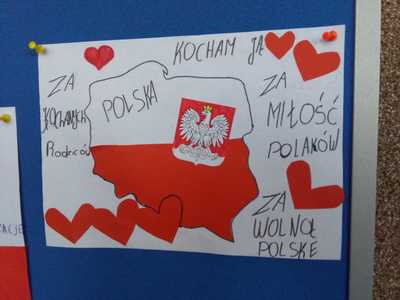 KOCHAM JĄ
ZA
KOCHANYCH
Rodziców
POLSKA
ZA
MIŁOŚĆ
POLAKÓW
ZA
WOLNĄ
POLSKE